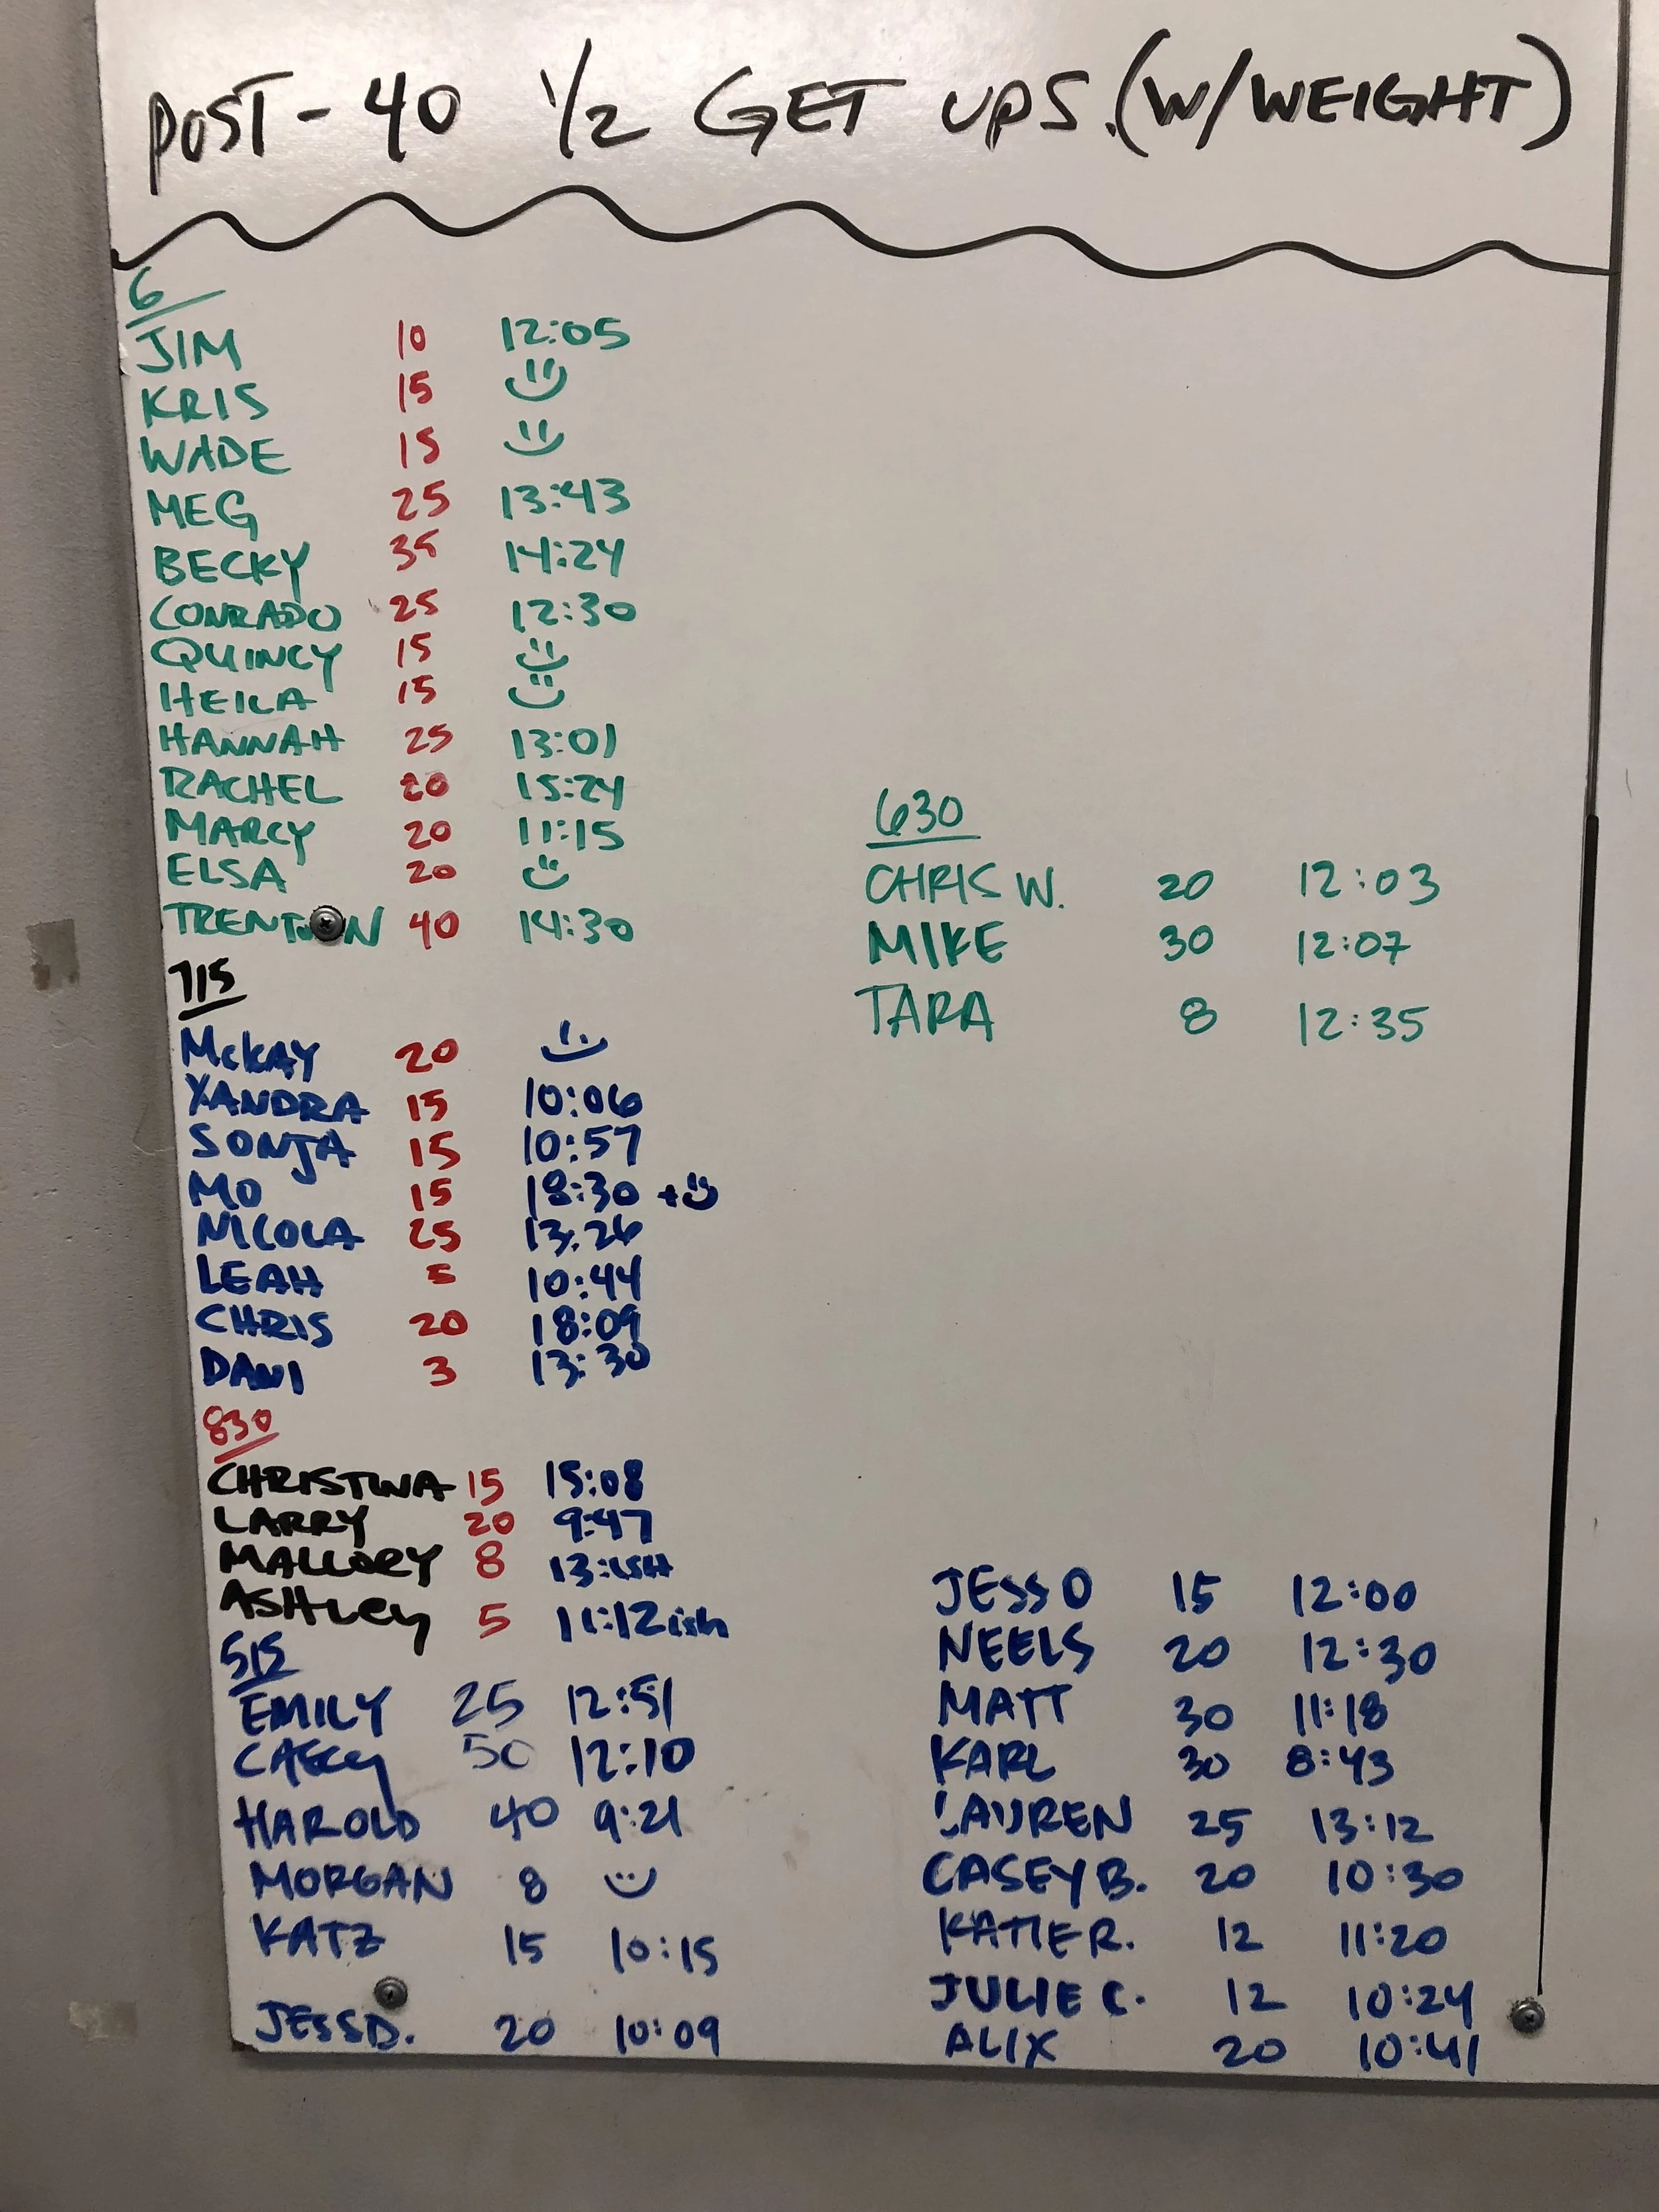 POST - 40 1/2 GET UPS. (W/WEIGHT)
6
JIM 10 12:05
KRIS 15
WADE 15
MEG 25 13:43
BECKY 35 14:24
CONRADO 25 12:30
QUINCY 15
HEILA 15
HANNAH 25 13:01
RACHEL 20 15:24
MARCY 20 11:15
ELSA 20
TRENTON 40 14:30
715
McKAY 20
XANDRA 15 10:06
SONJA 15 10:57
MO 15 18:30 +
NICOLA 25 13:26
LEAH 5 10:44
CHRIS 20 18:09
DANI 3 13:30
830
CHRISTINA 15 15:08
LARRY 20 9:47
MALLORY 8 13:ISH
ASHLEY 5 11:12ish
515
EMILY 25 12:51
CASEY 50 12:10
HAROLD 40 9:21
MORGAN 8
KATZ 15 10:15
JESS D. 20 10:09
JESS O 15 12:00
NEELS 20 12:30
MATT 30 11:18
KARL 30 8:43
LAUREN 25 13:12
CASEY B. 20 10:30
KATIE R. 12 11:20
JULIE C. 12 10:24
ALIX 20 10:41
630
CHRIS W. 20 12:03
MIKE 30 12:07
TARA 8 12:35